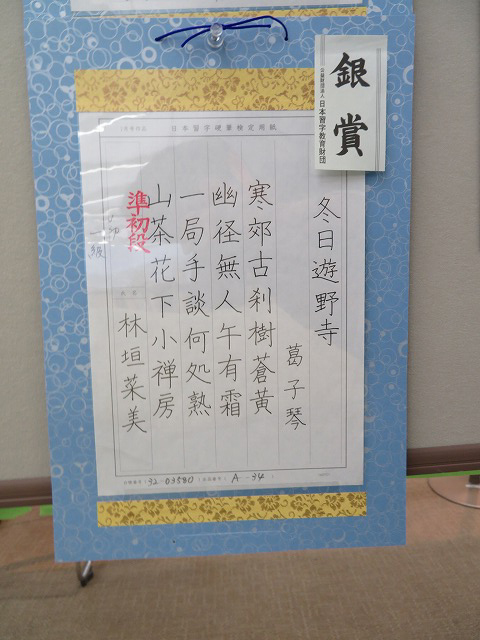 銀賞
公益財団法人 日本習字教育財団
日本習字硬筆検定用紙
冬日遊野寺
葛子琴
寒郊古刹樹蒼黄
幽径無人午有霜
一局手談何処熟
山茶花下小禅房
準初段
一級
氏名
林垣菜美
92-03580
A-94